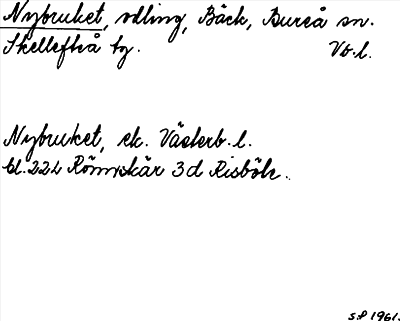 Nybruket, odling, Bäck, Bureå sn.
Skellefteå tg. Vb.l.
Nybruket, ek. Västerb.l.
bl. 222 Rönnskär 3d Risböle.
S.P 1961.